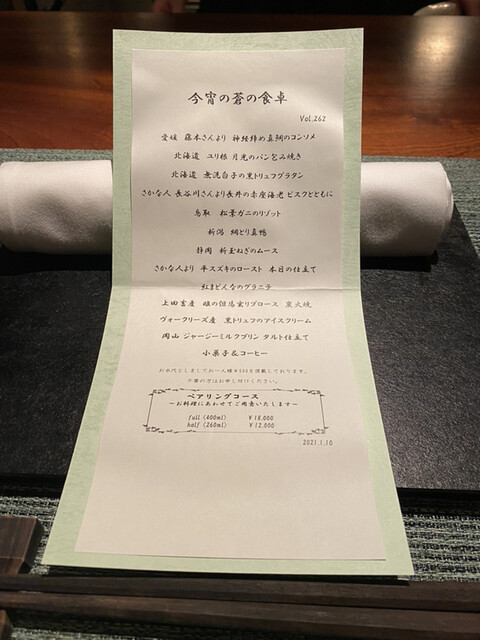 今宵の蒼の食卓
Vol.262
愛媛 藤本さんより 神経締め真鯛のコンソメ
北海道 ユリ根 月光のパン包み焼き
北海道 無洗白子の黒トリュフグラタン
さかな人 長谷川さんより長井の赤座海老 ビスクとともに
鳥取 松葉ガニのリゾット
新潟 網どり真鴨
静岡 新玉ねぎのムース
さかな人より 平スズキのロースト 本日の仕立て
紅まどんなのグラニテ
上田畜産 雌の但馬玄リブロース 炭火焼
ヴォークリーズ産 黒トリュフのアイスクリーム
岡山 ジャージーミルクプリン タルト仕立て
小菓子&コーヒー
お水代としましてお一人様¥500を頂戴しております。
不要の方はお申し付けください。
ペアリングコース
～お料理にあわせてご用意いたします～
full (400ml) ¥18,000
half (260ml) ¥12,000
2021.1.10